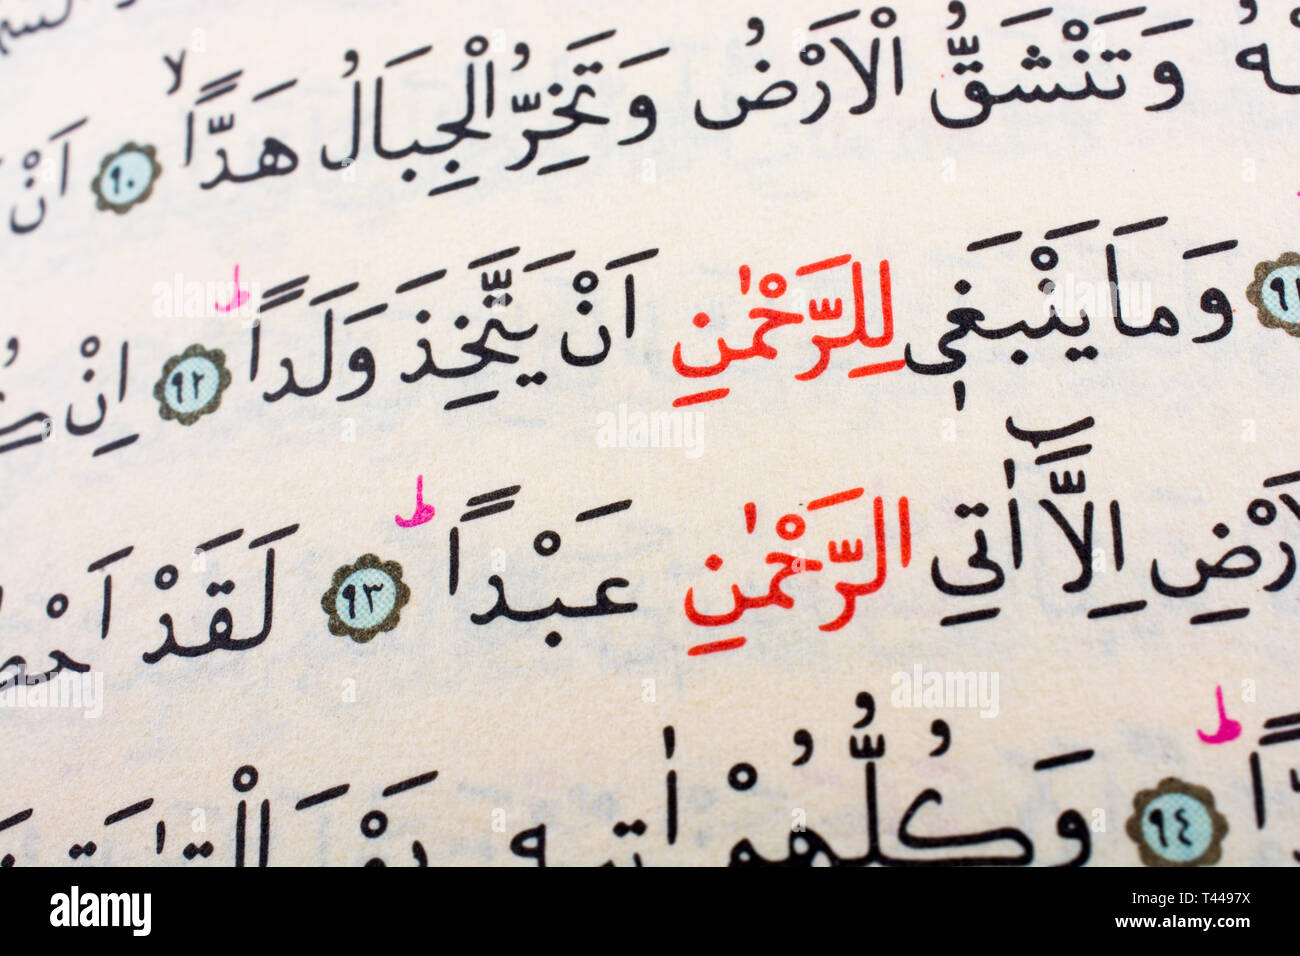 وَتَنْشَقُّ الْاَرْضُ وَتَخِرُّ الْجِبَالُ هَدًّاۙ ٩٠ اَنْ
٩١ وَمَا يَنْبَغٖي لِلرَّحْمٰنِ اَنْ يَتَّخِذَ وَلَدًاؕ ٩٢ اِنْ
اِلَّٓا اٰتِي الرَّحْمٰنِ عَبْدًاؕ ٩٣ لَقَدْ
٩٤ وَكُلُّهُمْ اٰتٖيهِ يَوْمَ
alamy
Image ID: T4497X
www.alamy.com